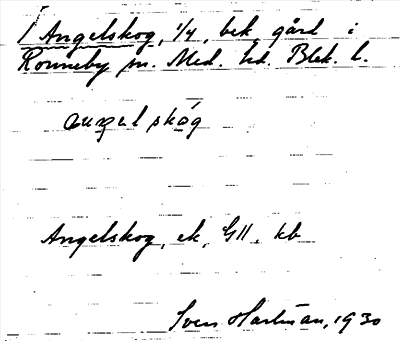 Angelskog, 1/4, bek. gård i
Ronneby sn. Med. hd. Blek. l.
aŋƞel skóg
Angelskog, ek, GII, kb
Sven Hartman, 1930